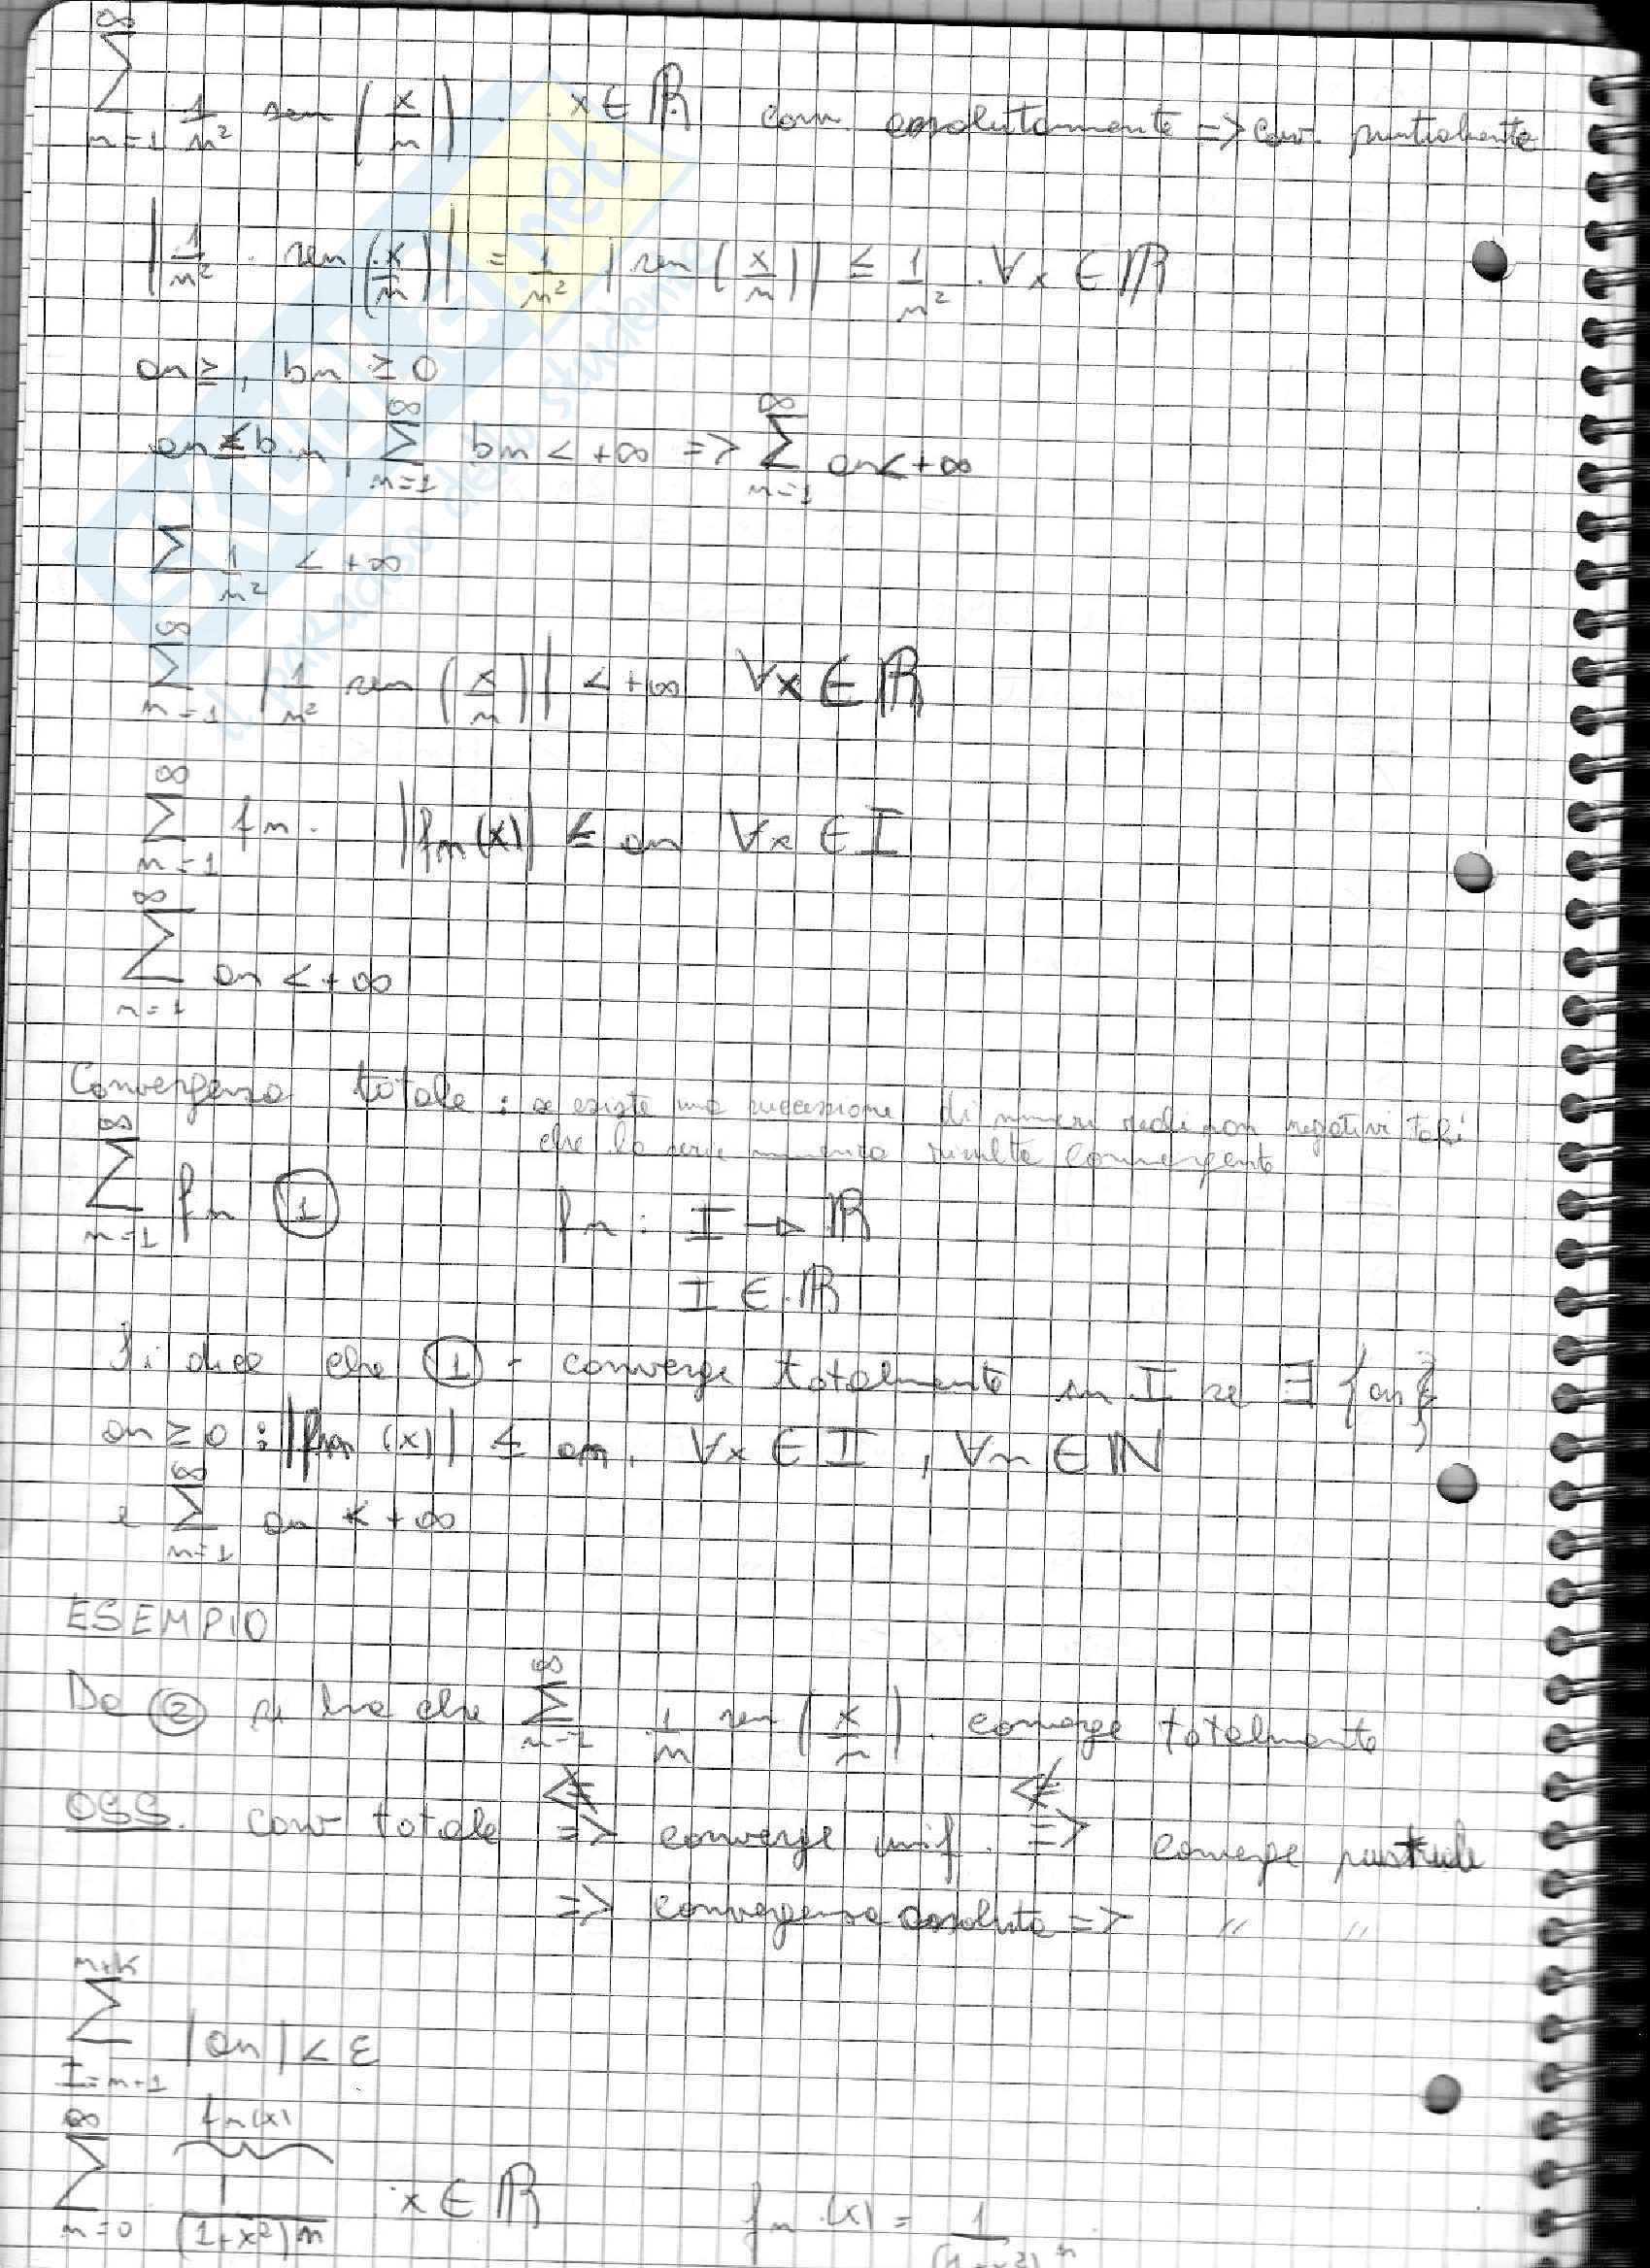 ∞
∑ 1/n² sen (x/n) . x ∈ ℝ conv. assolutamente => conv. puntualmente
n=1
|1/n² · sen (x/n)| = 1/n² |sen (x/n)| ≤ 1/n² . ∀x ∈ ℝ
an ≥, bn ≥ 0
an ≤ bn, ∑_{n=1}^{∞} bn < +∞ => ∑_{n=1}^{∞} an < +∞
∑ 1/n² < +∞
∑_{n=1}^{∞} |1/n² sen (x/n)| < +∞ ∀x ∈ ℝ
∑_{n=1}^{∞} fn . |fn(x)| ≤ an ∀x ∈ I
∑_{n=1}^{∞} an < +∞
Convergenza totale : se esiste una successione di numeri reali non negativi tali
che la serie numerica risulta convergente
∑_{n=1}^{∞} fn ① fn : I → ℝ
I ∈ ℝ
Si dice che ① - converge totalmente in I se ∃ {an}
an ≥ 0 : |fn (x)| ≤ an, ∀x ∈ I , ∀n ∈ ℕ
e ∑_{n=1}^{∞} an < +∞
ESEMPIO
Da ② si ha che ∑_{n=1}^{∞} 1/n sen (x/n) . converge totalmente
OSS. conv totale => converge unif. => converge puntuale
=> convergenza assoluta => " "
∑_{I=n+1}^{n+k} |an| < ε
∑_{n=0}^{∞} 1/(1+x²)^n . x ∈ ℝ fn (x) = 1/(1+x²)^n
fn(x)
SKUOLA.net
il paradiso dello studente